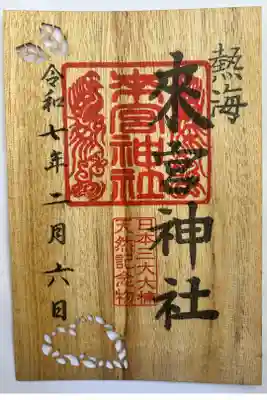 熱海
来宮神社
來宮神社
日本三大大樟
天然記念物
令和七年二月六日